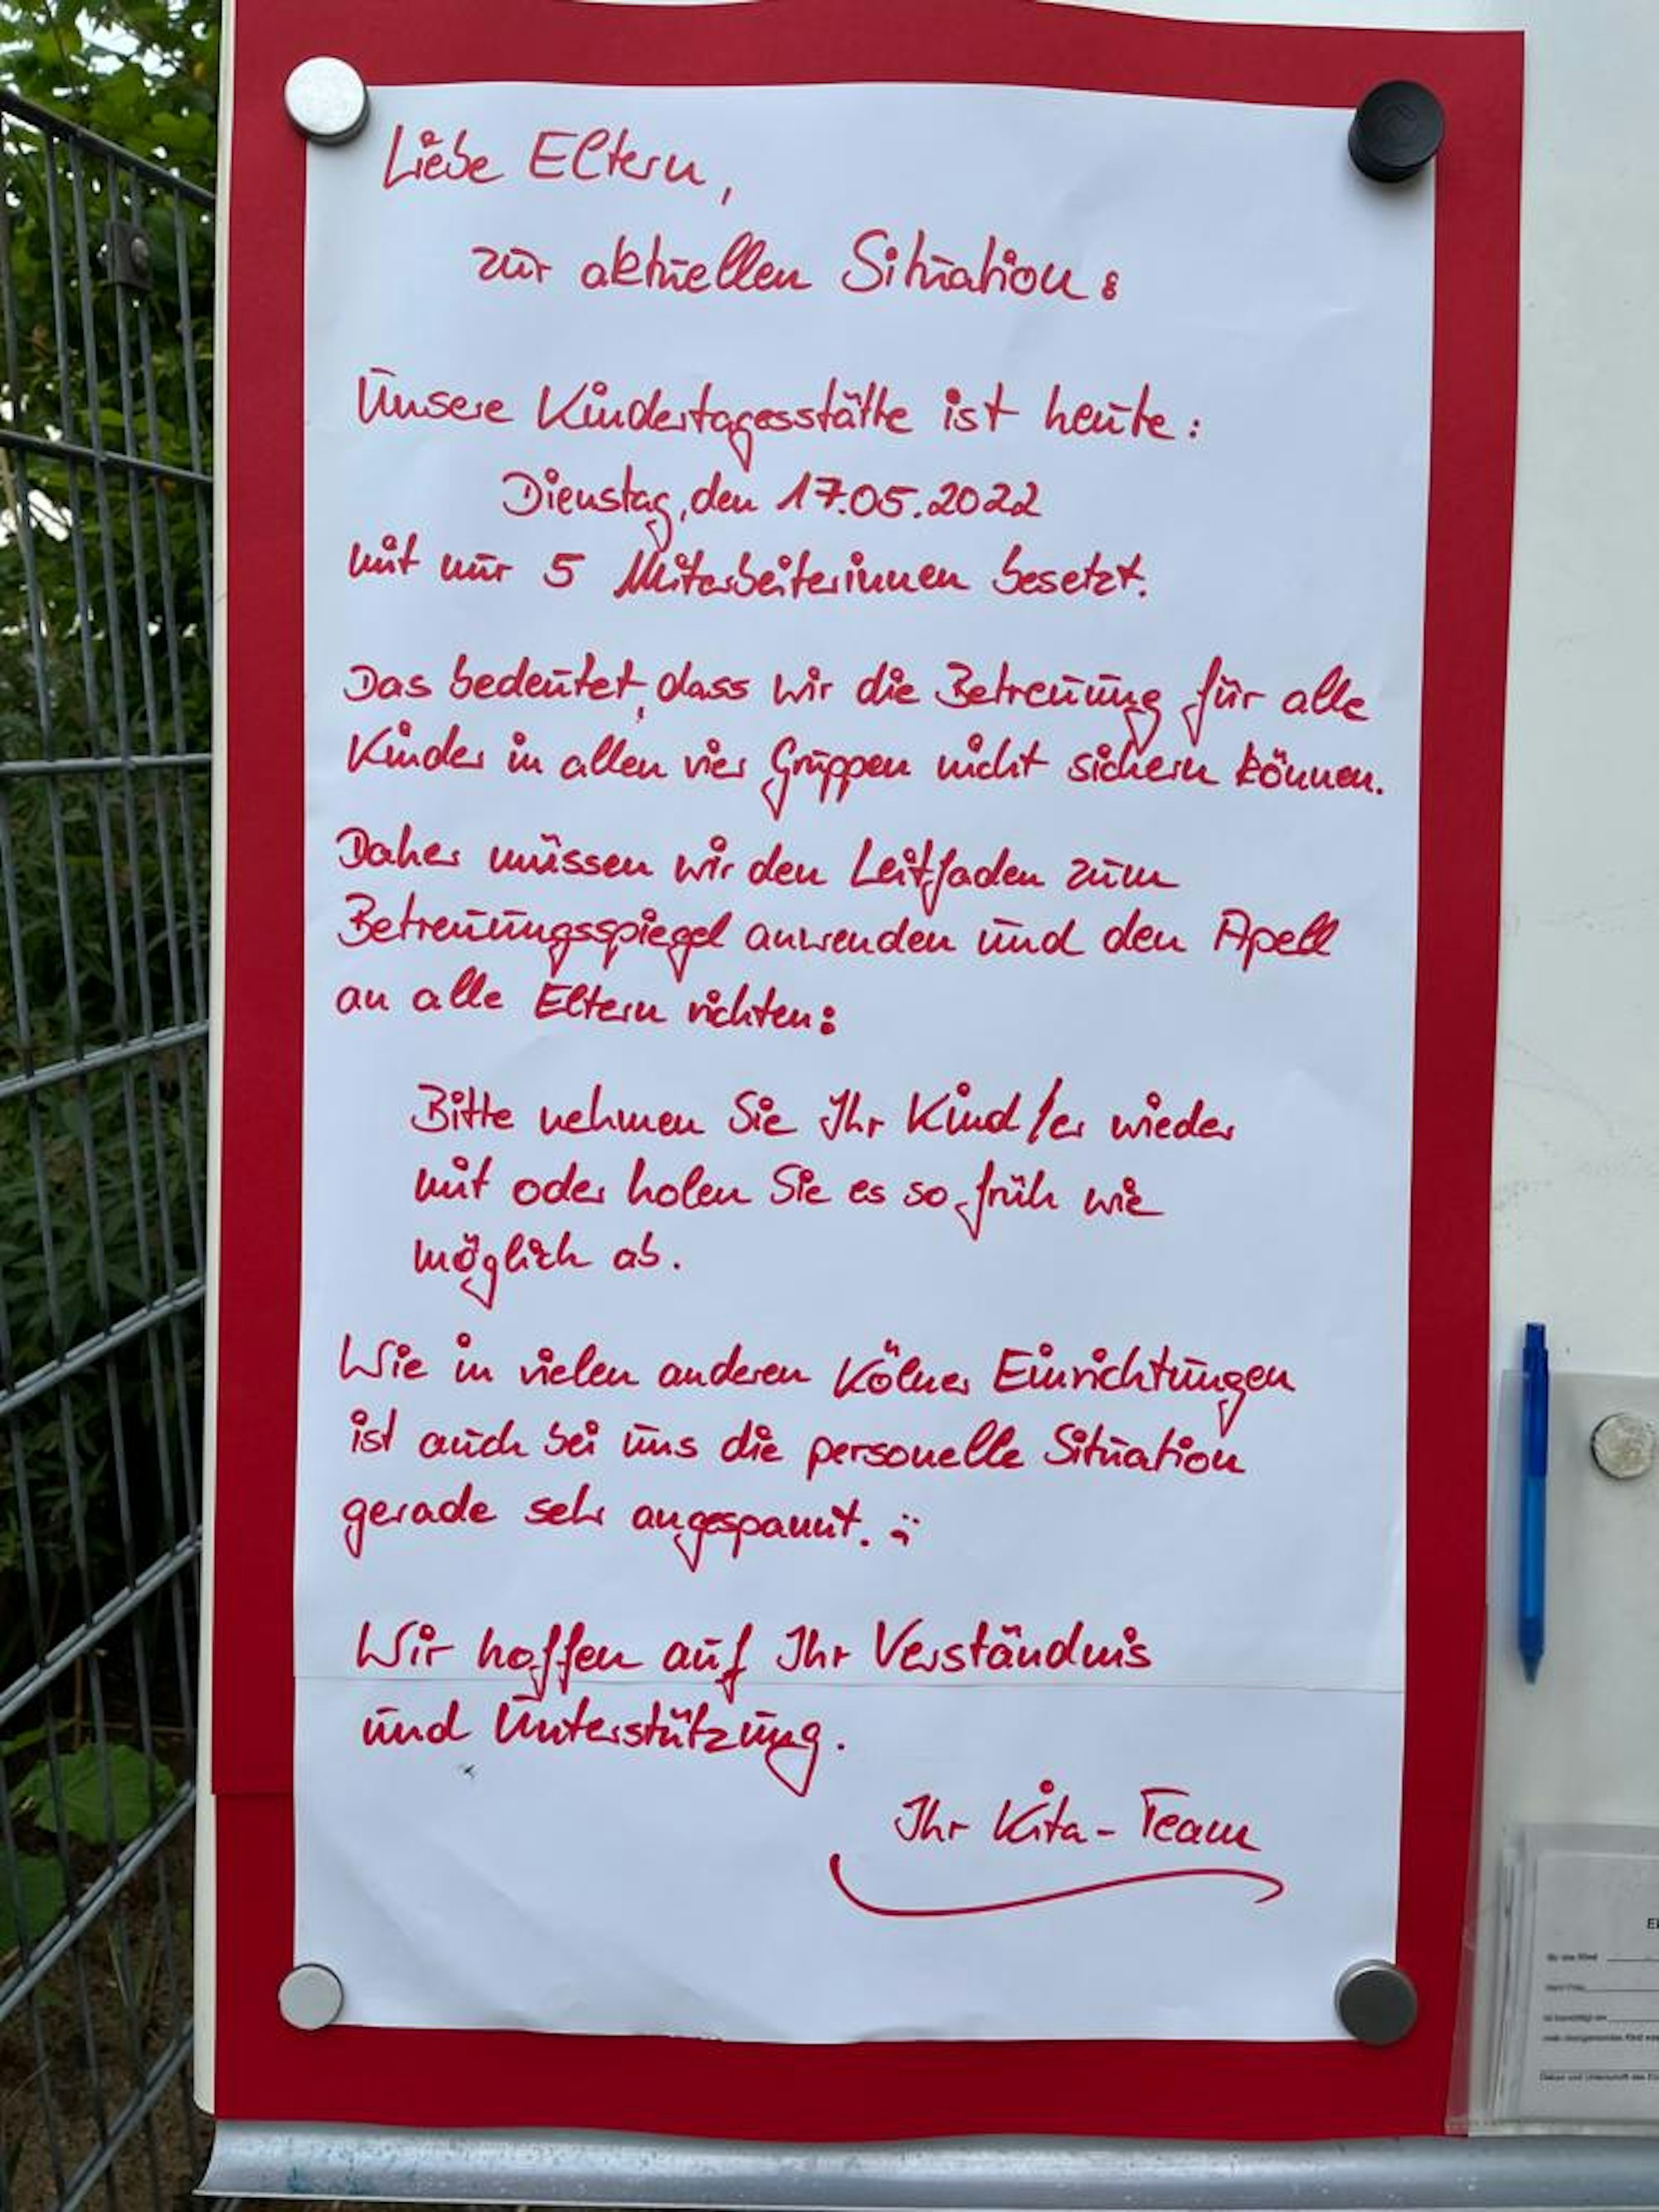 Liebe Eltern,
zur aktuellen Situation:
Unsere Kindertagesstätte ist heute:
Dienstag, den 17.05.2022
mit nur 5 Mitarbeiterinnen besetzt.
Das bedeutet, dass wir die Betreuung für alle
Kinder in allen vier Gruppen nicht sichern können.
Daher müssen wir den Leitfaden zum
Betreuungsspiegel anwenden und den Apell
an alle Eltern richten:
Bitte nehmen Sie Ihr Kind/er wieder
mit oder holen Sie es so früh wie
möglich ab.
Wie in vielen anderen Kölner Einrichtungen
ist auch bei uns die personelle Situation
gerade sehr angespannt.
Wir hoffen auf Ihr Verständnis
und Unterstützung.
Ihr Kita-Team